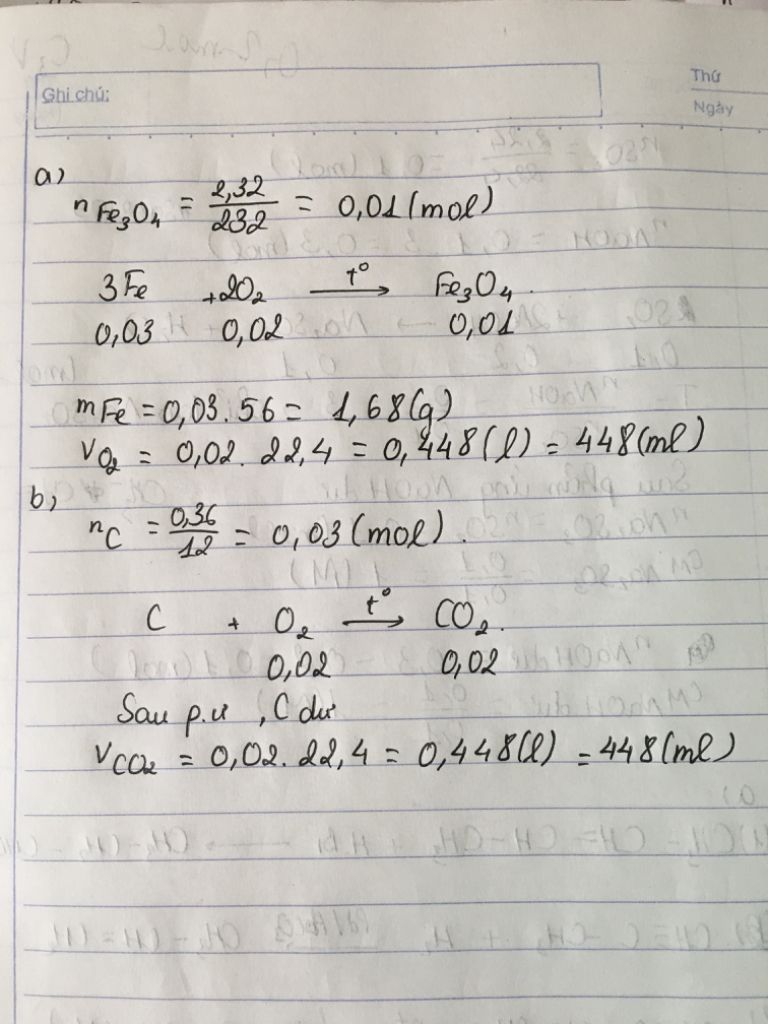 Ghi chú:
Thứ
Ngày
a)
nFe₃O₄ = 2,32/232 = 0,01 (mol)
3Fe + 2O₂ —t°→ Fe₃O₄.
0,03 0,02 0,01
mFe = 0,03. 56 = 1,68(g)
VO₂ = 0,02. 22,4 = 0,448(l) = 448(ml)
b)
nC = 0,36/12 = 0,03 (mol).
C + O₂ —t°→ CO₂.
0,02 0,02
Sau p.ư , C dư
VCO₂ = 0,02. 22,4 = 0,448(l) = 448(ml)